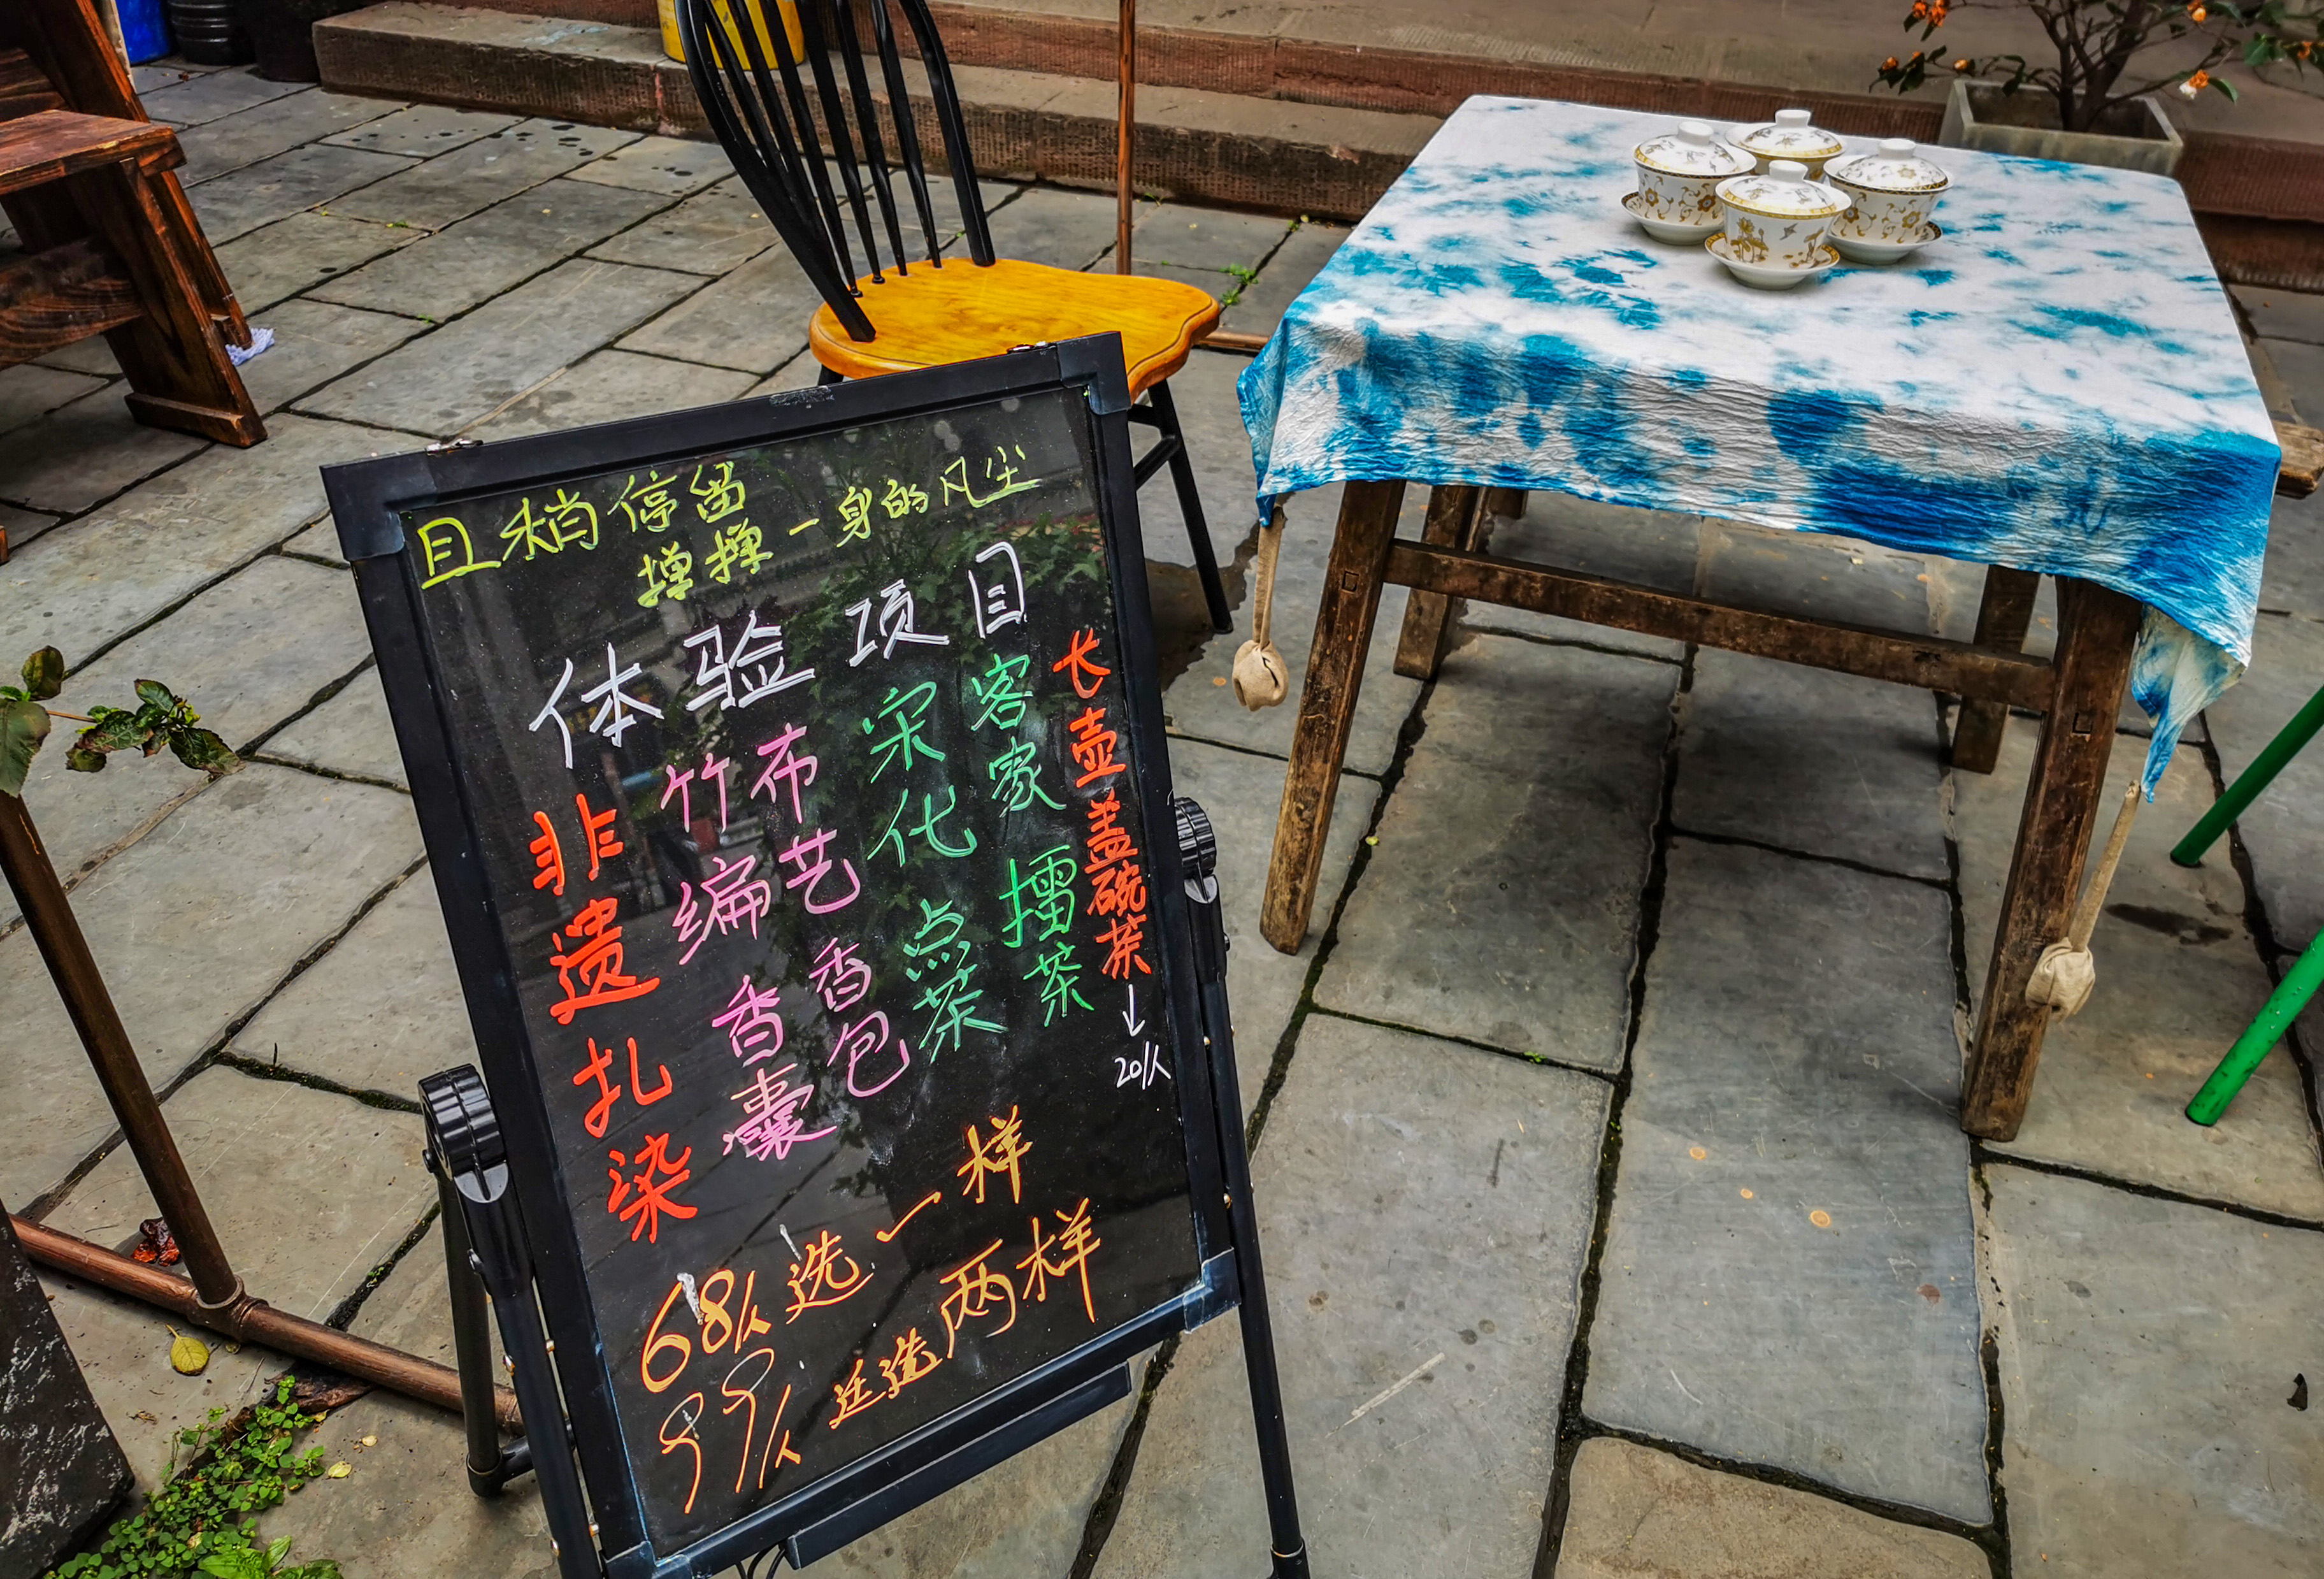 且稍停留
撣撣一身的风尘
体验项目
非遗扎染
竹编香囊
布艺香包
宋化点茶
客家擂茶
长壶盖碗茶
↓
20/人
68/人选一样
99/人任选两样